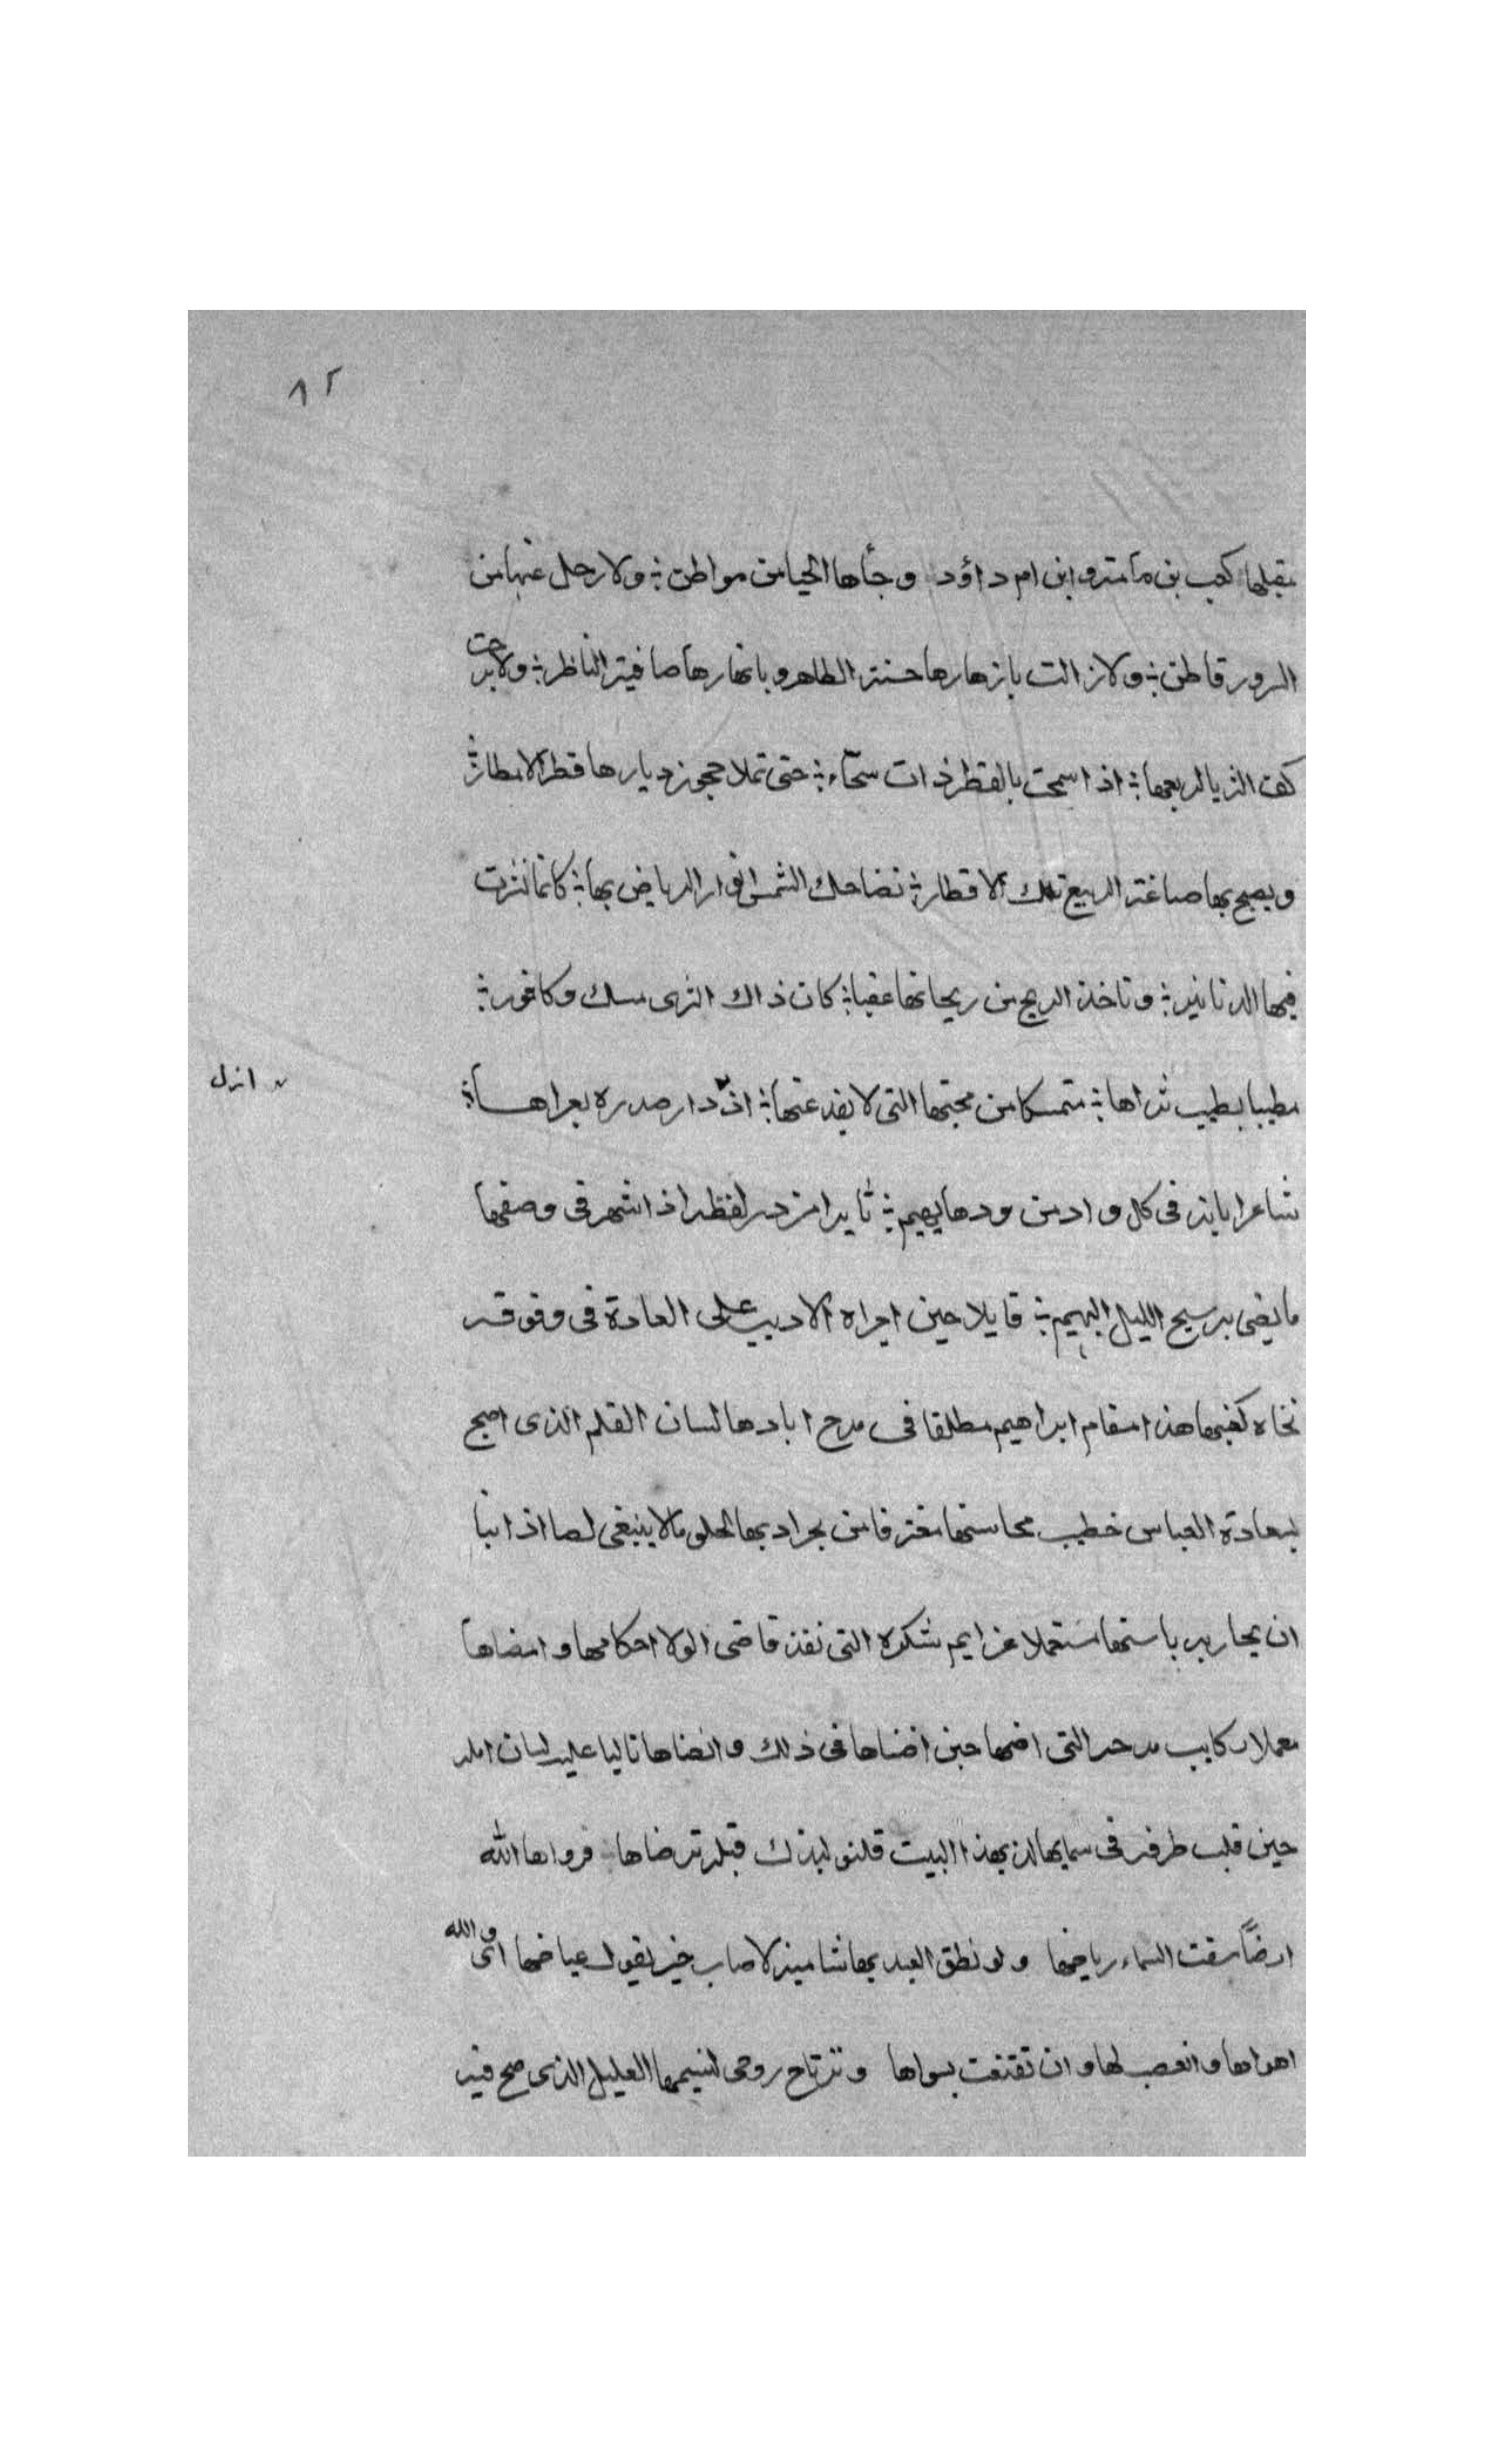 ٨٢
بقبلها كعب بن مامة وابن ام داؤد وجأها الحيا من مواطن ؛ ولا رحل عنها من
السرور قاطن ؛ ولا زالت بازهارها حسنة الظاهر وبانهارها صافية الناظر ؛ ولا برحت
كف الثريا لربعها ؛ اذا سمحت بالقطر ذات سحّاء ؛ حتى تملا حجوز ديارها قطر الامطار ؛
ويصبح بها صباغة الربيع تلك الاقطار ؛ تضاحك الشمس انوار الرياض بها ؛ كانما نثرت
فيها الدنانير ؛ وتاخذ الريح من ريحانها عبقا ؛ كان ذاك الثرى مسك وكافور ؛
مطيبا بطيب ثراها ؛ متمسكا من محبتها التى لا يفد عنها ؛ اذ دار صدره بعراها ؛
انزل
شاعرا بانه فى كل واد من ودها يهيم ؛ ثايرا من در لفظه اذا شهر فى وصفها
ما يضى به سبج الليل البهيم ؛ قايلا حين اجراه الاديب على العادة فى وقوفه
تجاه كعبتها هذا مقام ابراهيم مطلقا فى مدح ابادها لسان القلم الذى اصبح
لسعادة العباس خطيب محاسنها مغترفا من بحر ادبها الحلو ما لا ينبغى لصا اذا نبا
ان يحاربه باسنها مستعملا عزايم شكره التى نفذ قاضى الولا احكامها وامضاها
معملا ركايب مدحه التى اضمها حين اضناها فى ذلك وانضاها تاليا عليه لسان امله
حين قلب طرفه فى سمايها لذ بهذا البيت فلنولينك قبلة ترضاها فرواها الله
ارضًا سقت السماء رياضها ولو نطق العبد بها شامية لاصاب خير يقول عياضها اى والله
اهواها وانعصب لها وان تقنعت بسواها وترتاح روحى لنسيمها العليل الذى صح فيه